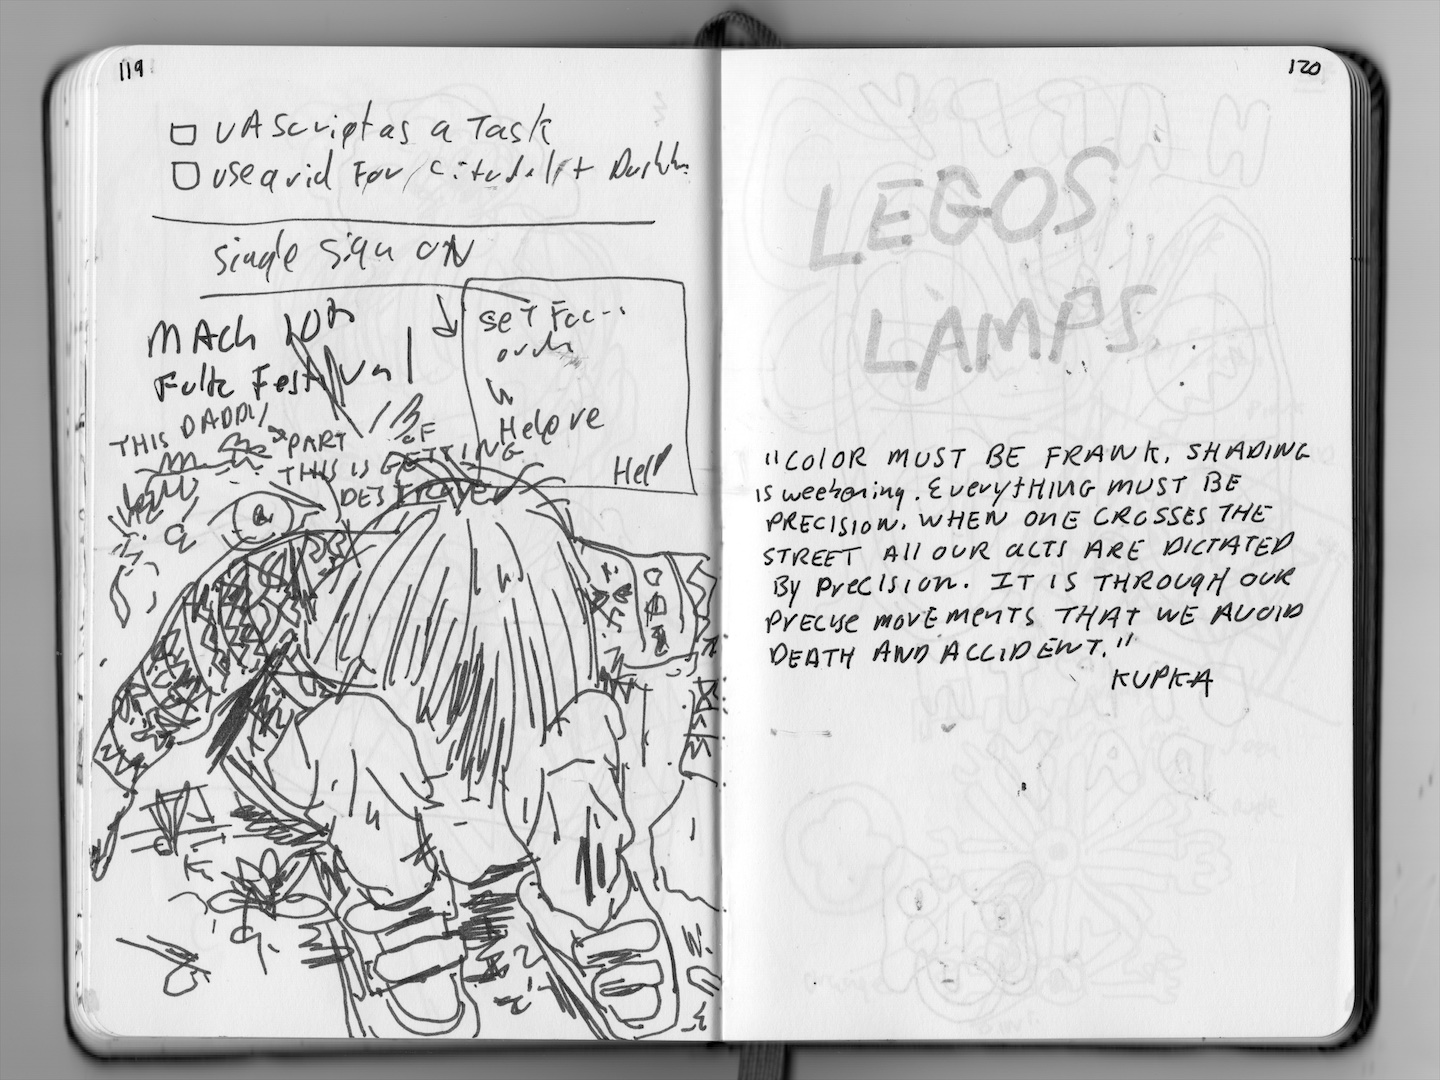 119
UA Script as a Task
use avid For
single sign ON
MAch 10th
Folk Festival
SET Foc...
Help ve
Help
THIS DADDY
PART
OF
THIS IS GETTING
DESTROYED
120
LEGOS
LAMPS
"COLOR MUST BE FRANK, SHADING
IS weakening. EVERYTHING MUST BE
PRECISION. WHEN ONE CROSSES THE
STREET All OUR ACTS ARE DICTATED
By PRECISION. IT IS THROUGH OUR
PRECISE MOVEMENTS THAT WE AVOID
DEATH AND ACCIDENT."
KUPKA